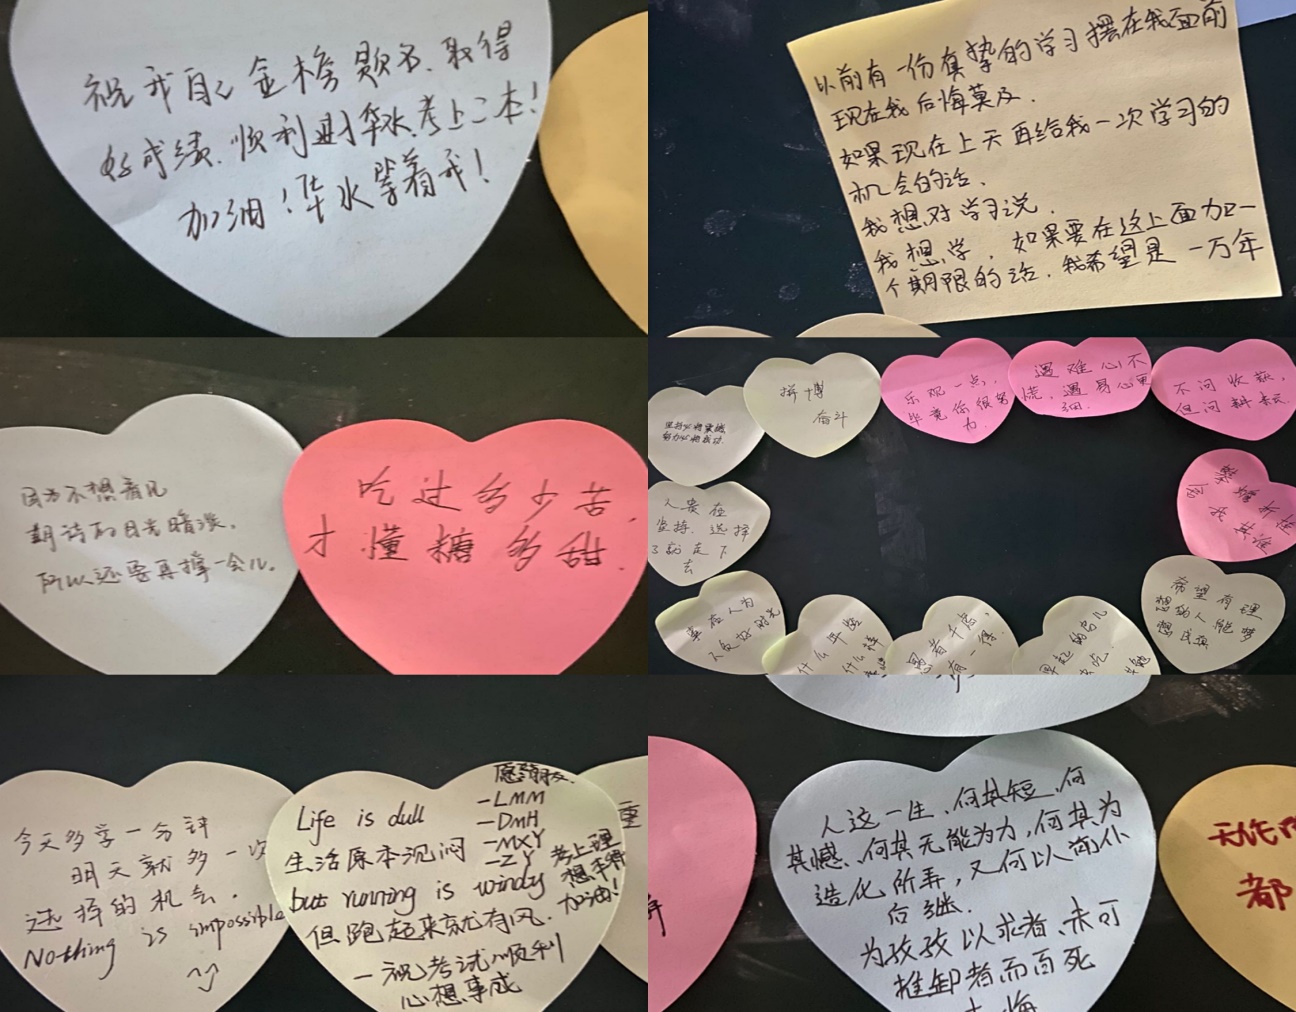 祝我自己金榜题名、取得
好成绩、顺利财华水、考上二本！
加油！华水等着我！
以前有一份真挚的学习摆在我面前
现在我后悔莫及．
如果现在上天再给我一次学习的
机会的话、
我想对学习说．
我想学．如果要在这上面加一
个期限的话．我希望是一万年
因为不想看见
期待的目光暗淡，
所以还要再撑一会儿。
吃过多少苦，
才懂糖多甜．
拼博
奋斗
乐观一点，
毕竟你很努
力
遇难心不
慌，遇易心更
细．
不问收获，
但问耕耘
人贵在
坚持、选择
了就走下
去
事在人为
什么年龄
什么样
希望有理
想的人能梦
想成真
今天多学一分钟
明天就多一次
选择的机会．
Nothing is impossible
Life is dull
生活原本沉闷
but running is windy
但跑起来就有风．
一祝考试顺利
心想事成
愿朋友
-LMM
-DMH
-MXY
-ZY
考上理
想本科
加油！
重
人这一生、何其短、何
其憾、何其无能为力，何其为
造化所弄，又何以前仆
后继．
为孜孜以求者、未可
推卸者而百死
都